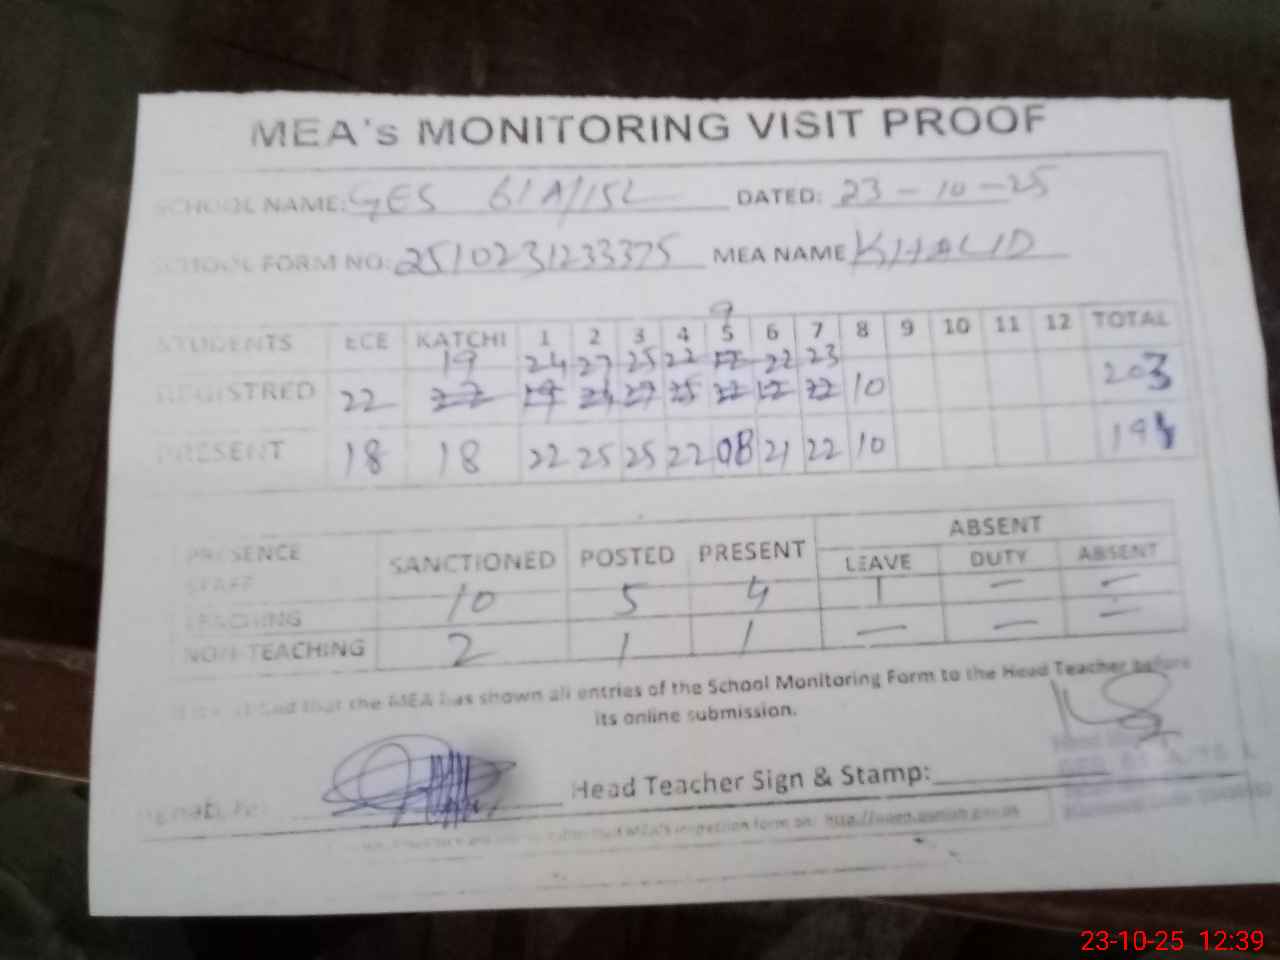 MEA's MONITORING VISIT PROOF
SCHOOL NAME: GES 61A/15L DATED: 23-10-25
SCHOOL FORM NO: 2510231233375 MEA NAME KHALID
9
STUDENTS ECE KATCHI 1 2 3 4 5 6 7 8 9 10 11 12 TOTAL
19 24 27 25 22 12 22 23
REGISTRED 22 22 19 24 27 25 22 12 22 10 203
PRESENT 18 18 22 25 25 22 08 21 22 10
ABSENT
PRESENCE SANCTIONED POSTED PRESENT LEAVE DUTY ABSENT
STAFF
TEACHING 10 5 4 1 — —
NON-TEACHING 2 1 1 — — —
that the MEA has shown all entries of the School Monitoring Form to the Head Teacher before
its online submission.
Signature: Head Teacher Sign & Stamp:
MEA's inspection form on: http://
23-10-25 12:39